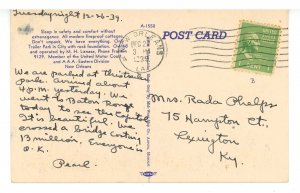 Tuesday night 12-26-39.
A-1550
Keep in safety and comfort without
extravagance. All modern fireproof cottages.
Don't unpack. We have everything. Only
Trailer Park in City with rock foundation.
and operated by M. H. Lanese, Phone Franklin
9139. Member of the United Motor Court
and A.A.A. Eastern Division
New Orleans
POST CARD
NEW ORLEANS
DEC 27
3 PM
1939
LA.
We are parked at this trailer
park. Arrived about
4 P.M. yesterday. We
went to Baton Rouge
today to see the Capitol.
It is beautiful. We
crossed a bridge costing
13 million. Everyone is
O.K.
Pearl.
Mrs. Rada Phelps
75 Hampton Ct.
Lexington
Ky.